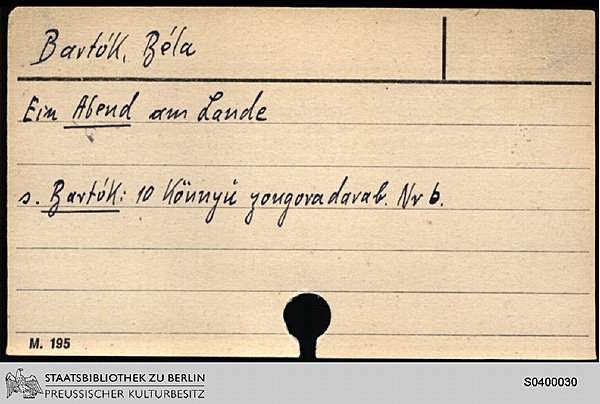 Bartók, Béla
Ein Abend am Lande
s. Bartók: 10 Könnyü zongoradarab. Nr 6.
M. 195
STAATSBIBLIOTHEK ZU BERLIN
PREUSSISCHER KULTURBESITZ
S0400030